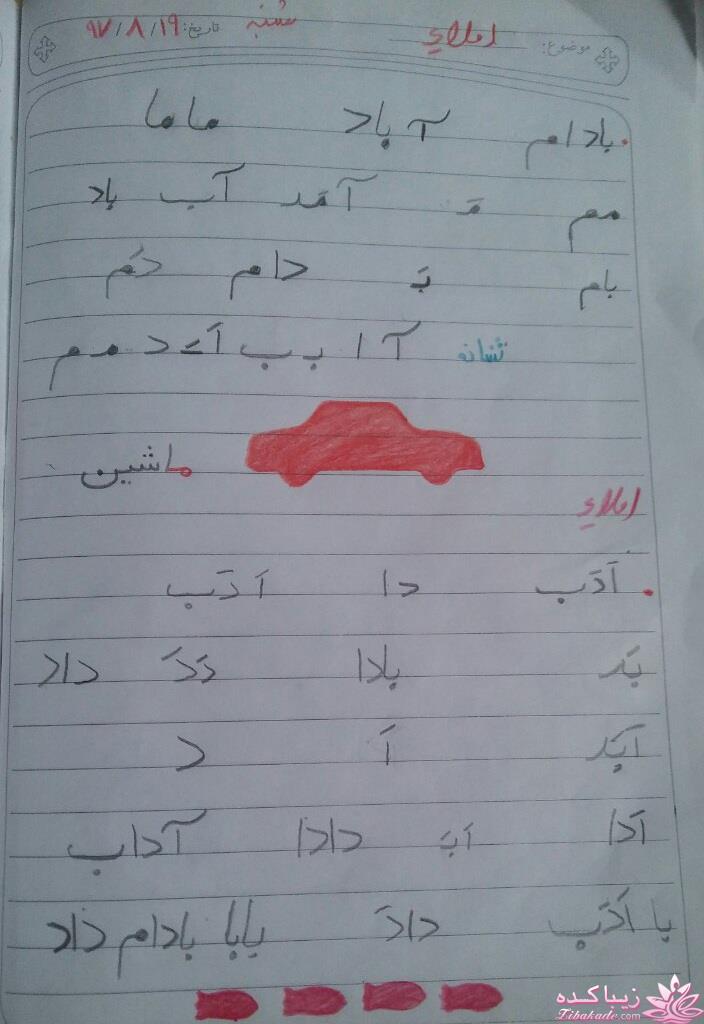 موضوع: املاء شنبه تاریخ: ۹۷/۸/۱۹
بادام آباد ماما
مم مَـ آمَد آب باد
بام بَـ دام دَم
آ ا بـ ب اَ ـَ د مـ م
ماشین
املاء
اَدَب دا اَدَب
بَد بادا دَدَ داد
اَبَد اَ د
اَدا اَبَـ دادا آداب
با اَدَب دادَ بابا بادام داد
زیباکده
Zibakade.com